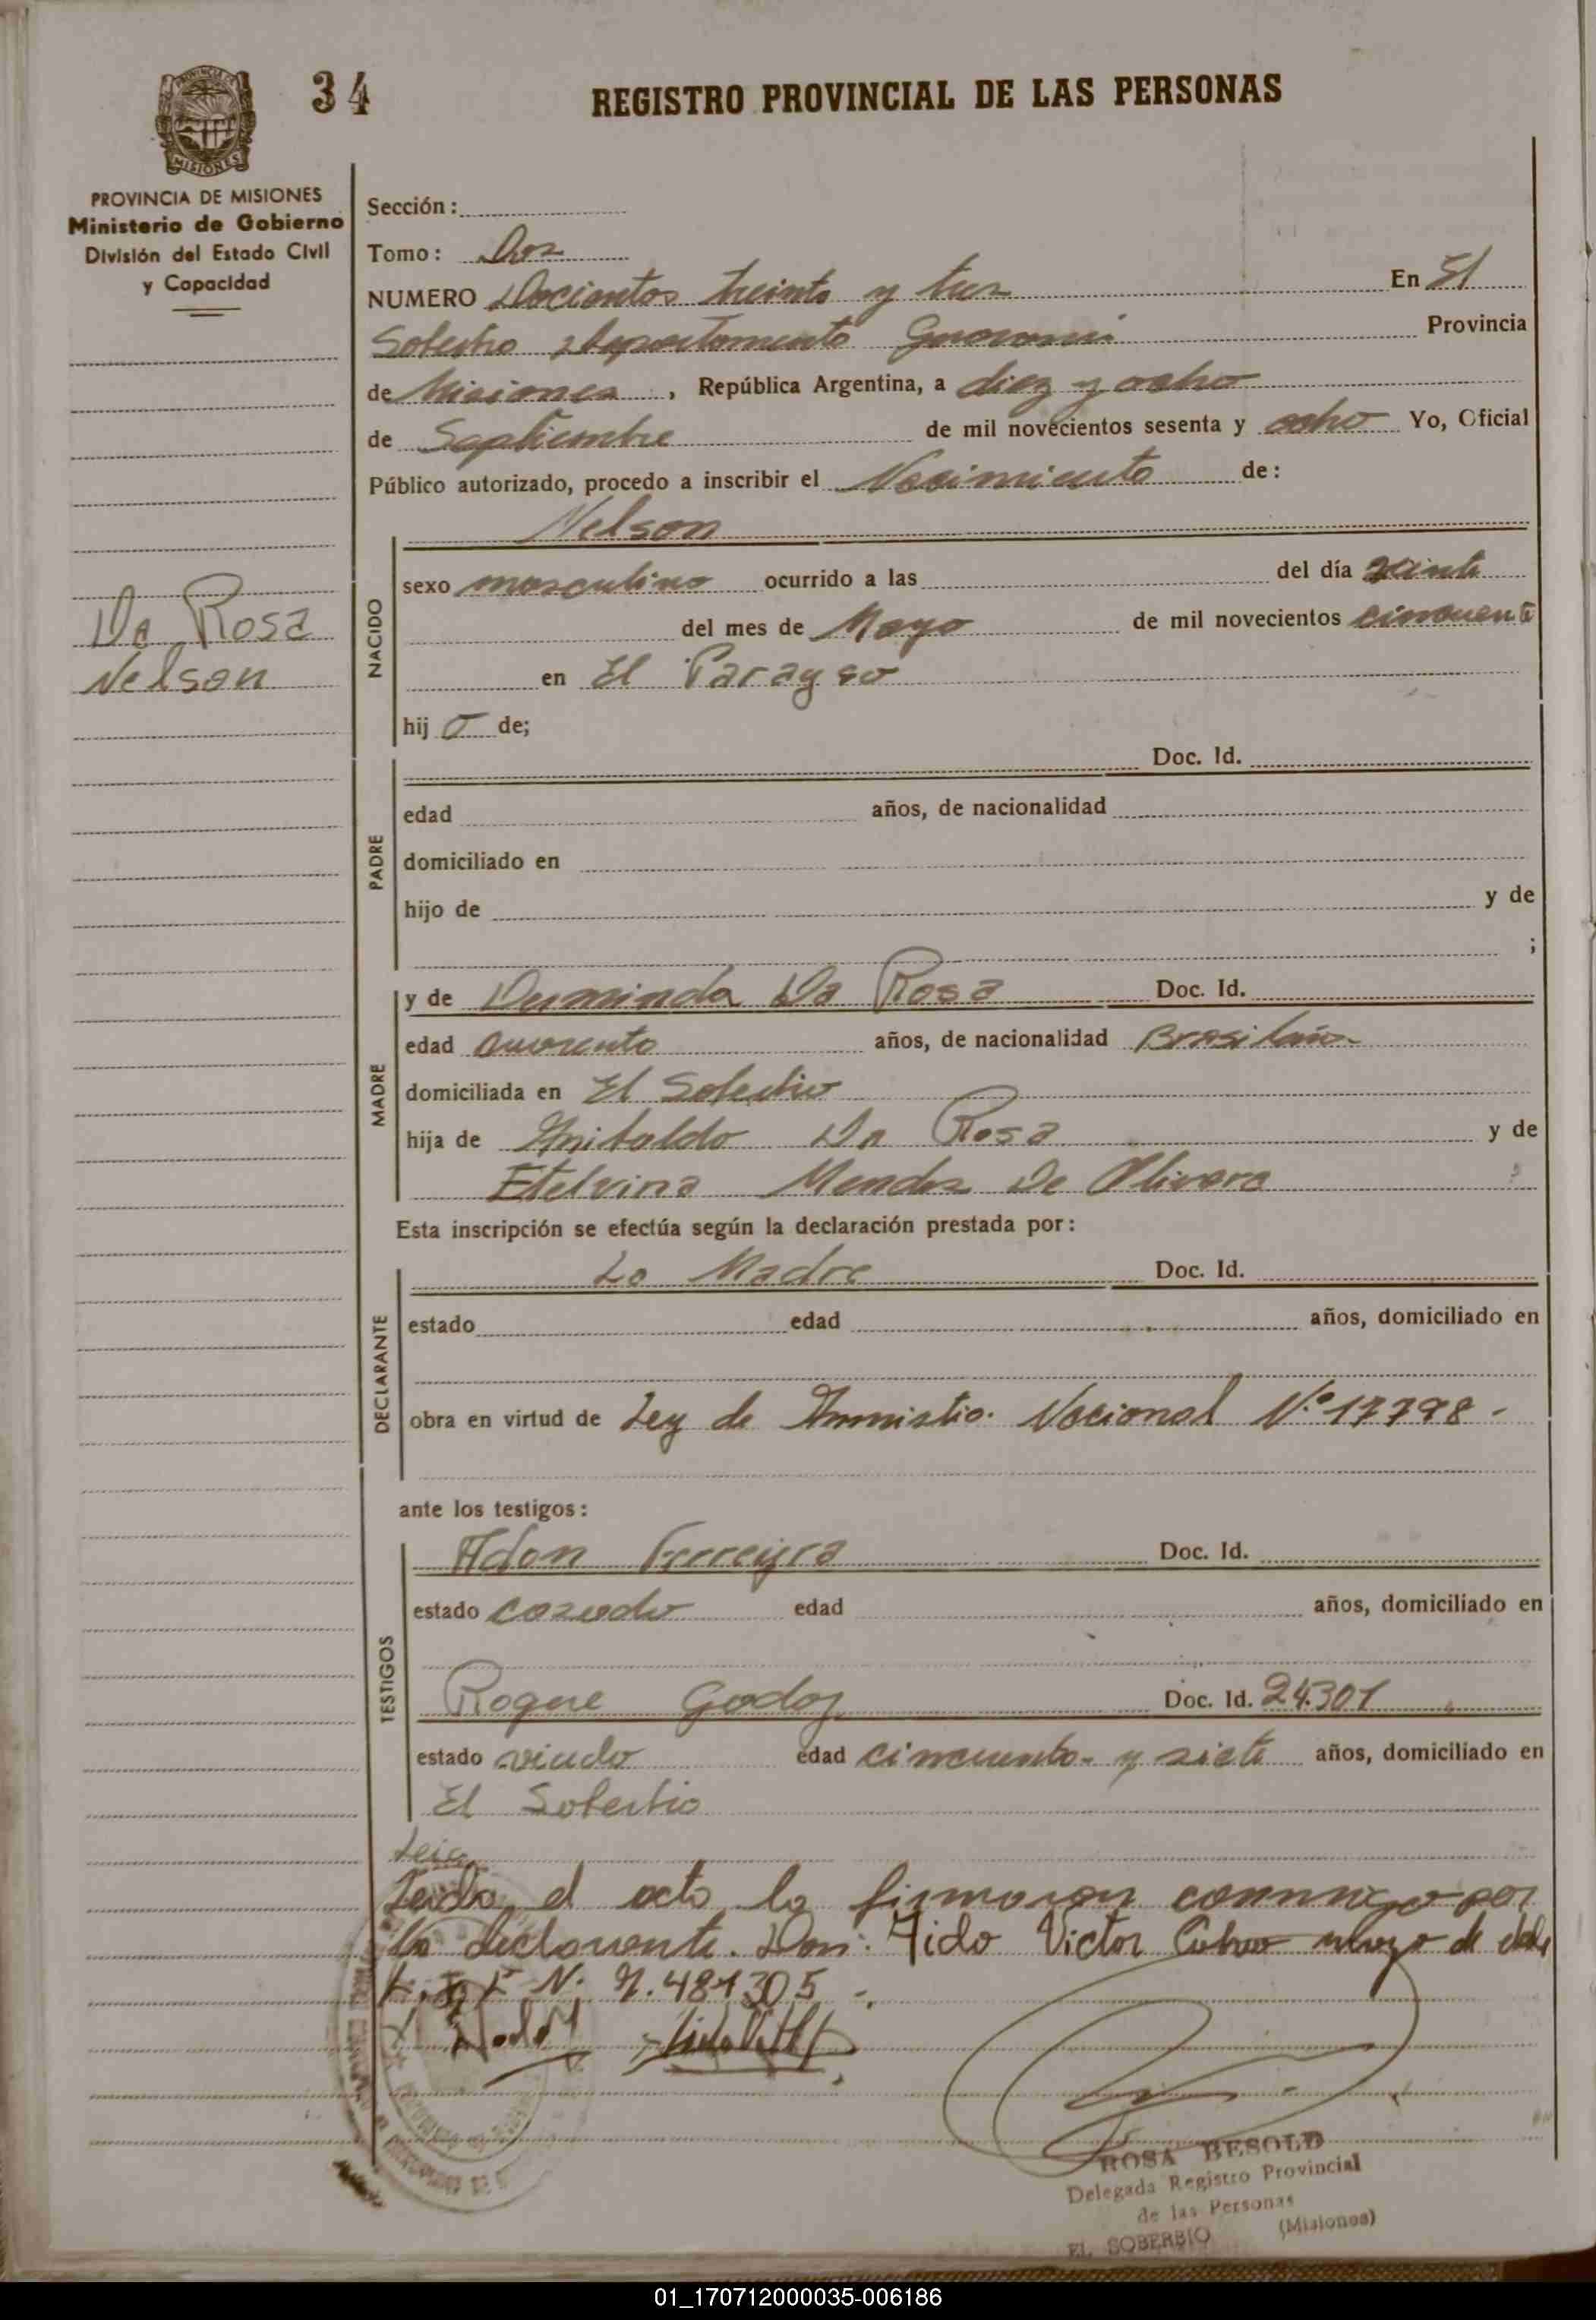 34
REGISTRO PROVINCIAL DE LAS PERSONAS
MISIONES
PROVINCIA DE MISIONES
Ministerio de Gobierno
División del Estado Civil
y Capacidad
Da Rosa
Nelson
Sección:
Tomo: Dos
NUMERO Docientos treinta y tres En El
Soberbio Departamento Guarani Provincia
de Misiones, República Argentina, a diez y ocho
de Septiembre de mil novecientos sesenta y ocho Yo, Oficial
Público autorizado, procedo a inscribir el Nacimiento de:
Nelson
NACIDO
sexo masculino ocurrido a las del día
del mes de Mayo de mil novecientos cincuenta
en El Parayso
hij o de;
PADRE
Doc. Id.
edad años, de nacionalidad
domiciliado en
hijo de y de
;
MADRE
y de Derminda Da Rosa Doc. Id.
edad cuarenta años, de nacionalidad Brasileña
domiciliada en El Soberbio
hija de Da Rosa y de
Etelvina Mendes De Olivera
Esta inscripción se efectúa según la declaración prestada por:
DECLARANTE
La Madre Doc. Id.
estado edad años, domiciliado en
obra en virtud de Ley de Amnistia Nacional N.º 17798-
ante los testigos:
TESTIGOS
Adon Ferreyra Doc. Id.
estado casado edad años, domiciliado en
Roque Godoy Doc. Id. 24.301
estado viudo edad cincuenta y siete años, domiciliado en
El Soberbio
Leida el acta la firmaran conmigo por
la declarante. Don: Victor
ROSA BESOLD
Delegada Registro Provincial
de las Personas
EL SOBERBIO (Misiones)
01_170712000035-006186